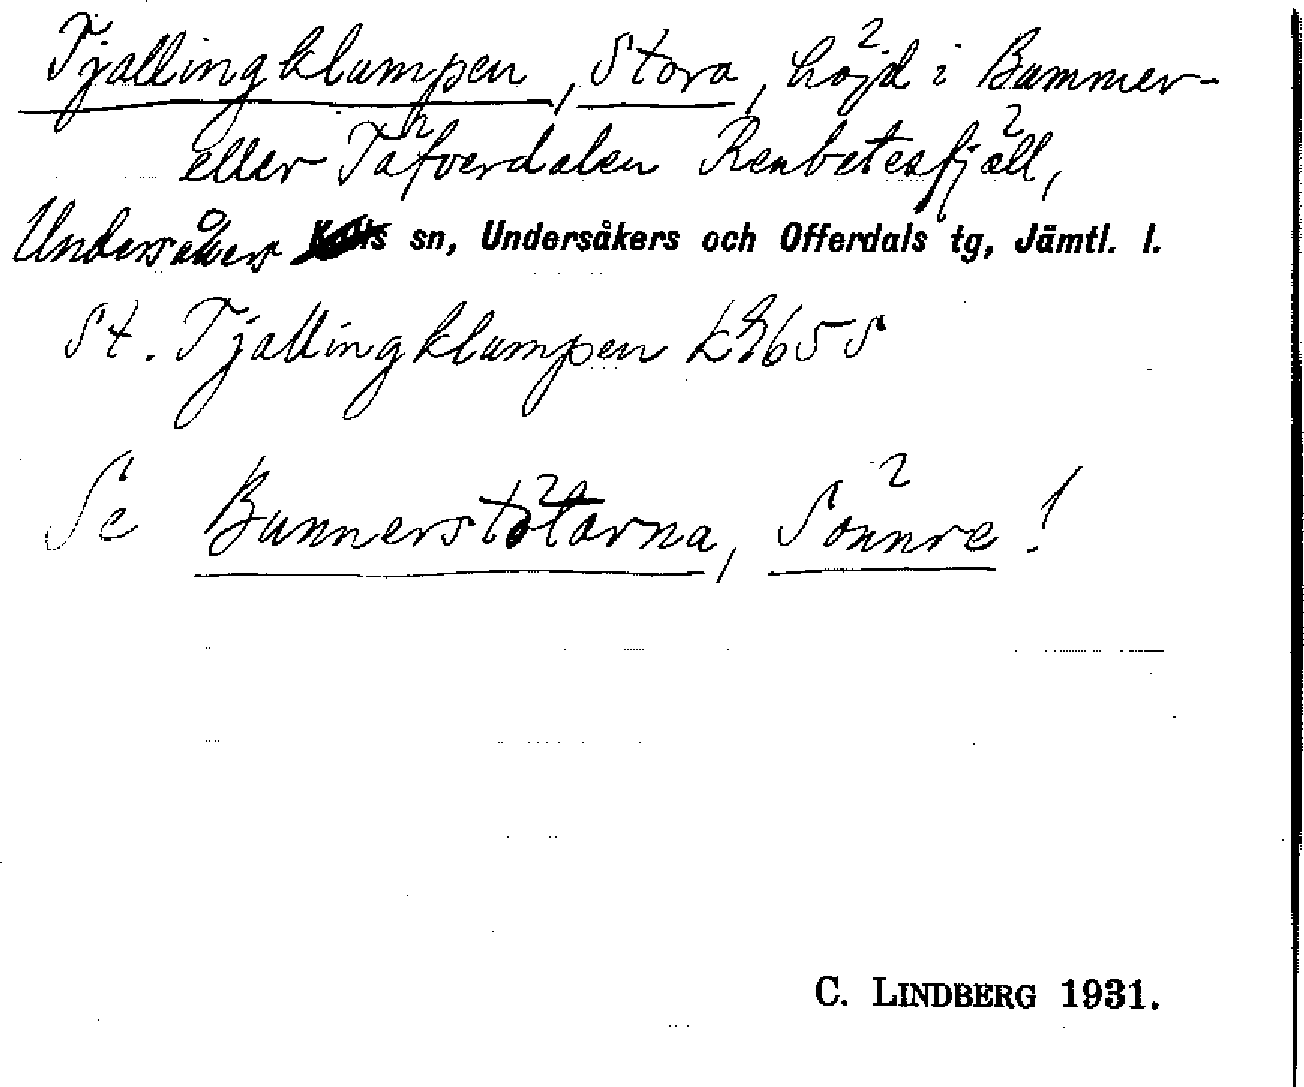 Tjallingklumpen, Stora, höjd i Bummer-
eller Täfverdalen Renbetesfjäll,
Undersåkers sn, Undersåkers och Offerdals tg, Jämtl. l.
St. Tjallingklumpen 65 S
Se Bunnerstötarna, Sönnre!
C. LINDBERG 1931.